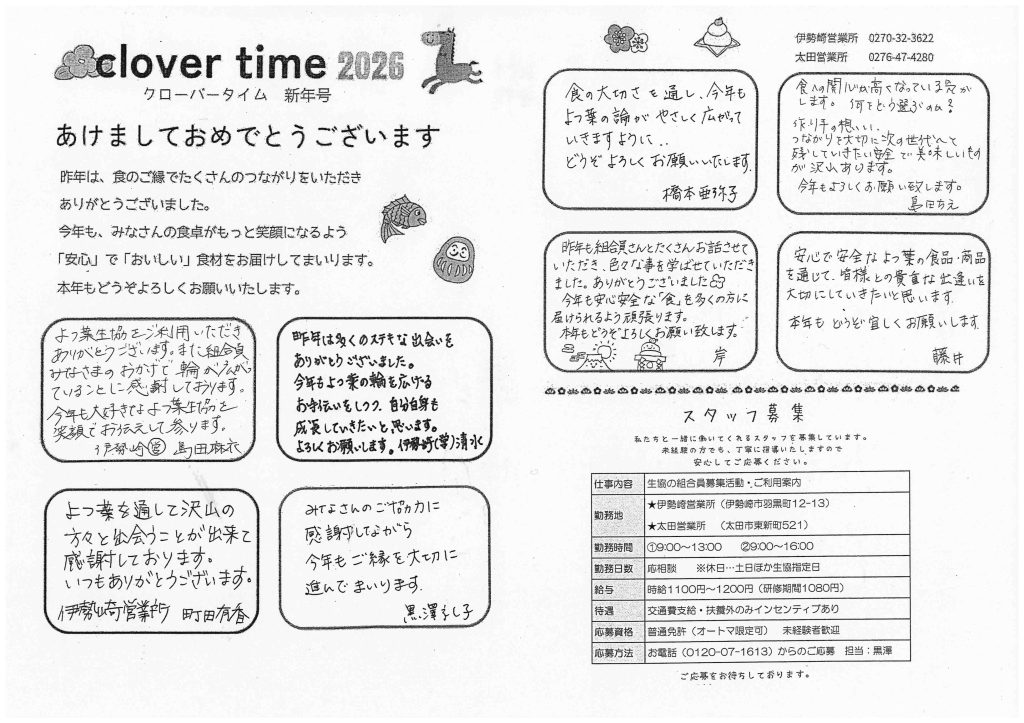 clover time 2026
クローバータイム 新年号
あけましておめでとうございます
昨年は、食のご縁でたくさんのつながりをいただき
ありがとうございました。
今年も、みなさんの食卓がもっと笑顔になるよう
「安心」で「おいしい」食材をお届けしてまいります。
本年もどうぞよろしくお願いいたします。
よつ葉生協をご利用いただき
ありがとうございます。また組合員
みなさまのおかげで輪が広がっ
ていることに感謝しております。
今年も大好きなよつ葉生協を
笑顔でお伝えして参ります。
伊勢崎㊂ 島田麻衣
昨年は多くのステキな出会いを
ありがとうございました。
今年もよつ葉の輪を広げる
お手伝いをしつつ、自分自身も
成長していきたいと思います。
よろしくお願いします。伊勢崎(営)清水
よつ葉を通して沢山の
方々と出会うことが出来て
感謝しております。
いつもありがとうございます。
伊勢崎営業所 町田有香
みなさんのご協力に
感謝しながら
今年もご縁を大切に
進んでまいります。
黒澤よし子
伊勢崎営業所 0270-32-3622
太田営業所 0276-47-4280
食の大切さを通し、今年も
よつ葉の論がやさしく広がって
いきますように..
どうぞよろしくお願いいたします。
橋本亜弥子
食への関心が高くなっている気が
します。何をどう選ぶのか?
作り手の想い、
つながりを大切に次の世代へと
残していきたい安全で美味しいもの
が沢山あります。
今年もよろしくお願い致します。
島田ちえ
昨年も組合員さんとたくさんお話させて
いただき、色々な事を学ばせていただき
ました。ありがとうございました
今年も安心安全な「食」を多くの方に
届けられるよう頑張ります。
本年もどうぞよろしくお願い致します。
岸
安心で安全なよつ葉の食品・商品
を通じて、皆様との貴重な出逢いを
大切にしていきたいと思います。
本年もどうぞ宜しくお願いします。
藤井
スタッフ募集
私たちと一緒に働いてくれるスタッフを募集しています。
未経験の方でも、丁寧に指導いたしますので
安心してご応募ください。
仕事内容 生協の組合員募集活動・ご利用案内
勤務地 ★伊勢崎営業所(伊勢崎市羽黒町12-13)
★太田営業所 (太田市東新町521)
勤務時間 ①9:00~13:00 ②9:00~16:00
勤務日数 応相談 ※休日…土日ほか生協指定日
給与 時給1100円~1200円(研修期間1080円)
待遇 交通費支給・扶養外のみインセンティブあり
応募資格 普通免許(オートマ限定可) 未経験者歓迎
応募方法 お電話(0120-07-1613)からのご応募 担当:黒澤
ご応募をお待ちしております。